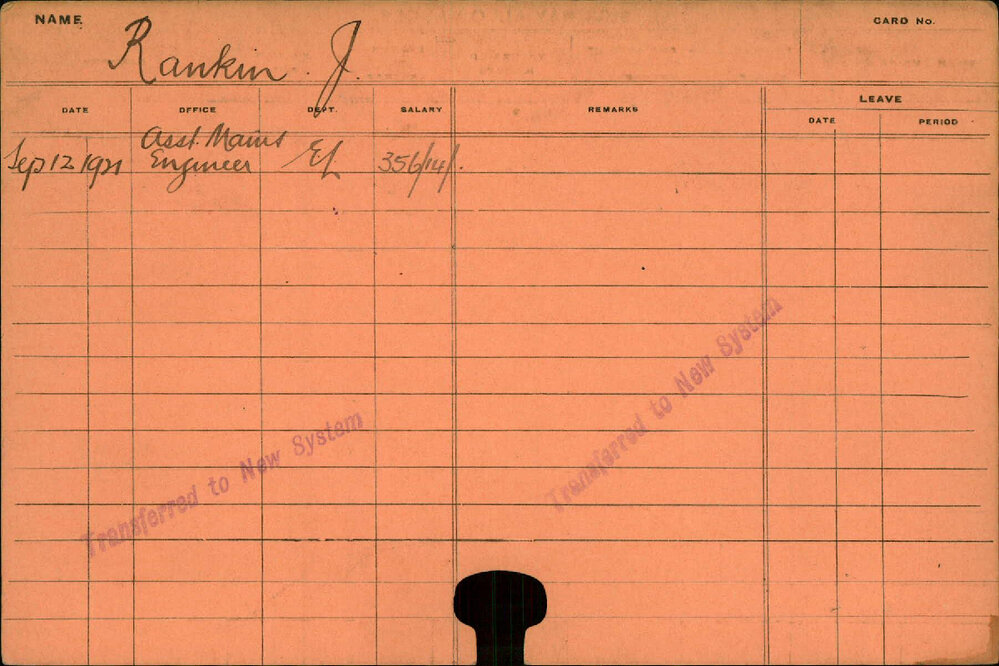 NAME
CARD No.
Rankin J.
DATE
OFFICE
DEPT.
SALARY
REMARKS
LEAVE
DATE
PERIOD
Asst. Mains
Sep 12 1921 Engineer EL 356/14/.
Transferred to New System
Transferred to New System